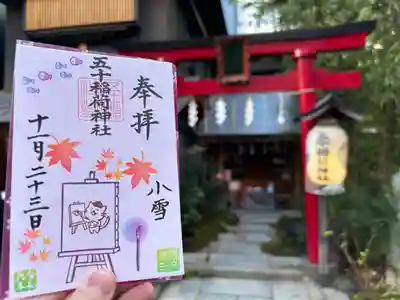 奉拝
五十稲荷神社
小雪
十一月二十三日